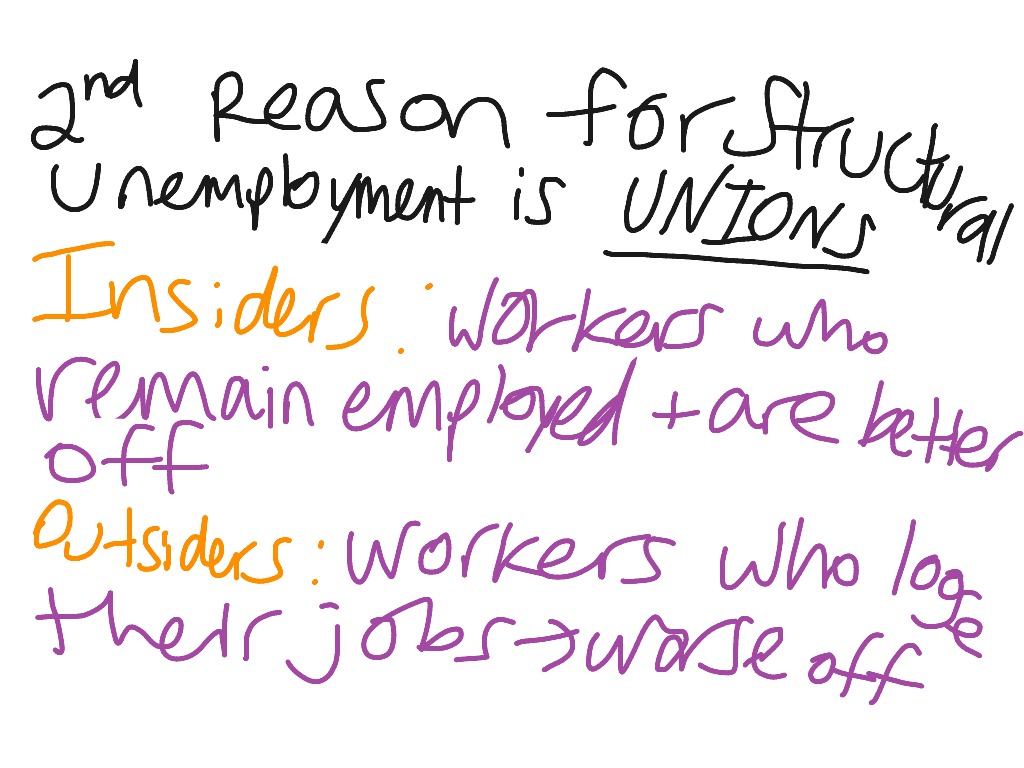 2nd Reason for Structural
Unemployment is UNIONS
Insiders: workers who
remain employed + are better
off
Outsiders: workers who lose
their jobs → worse off